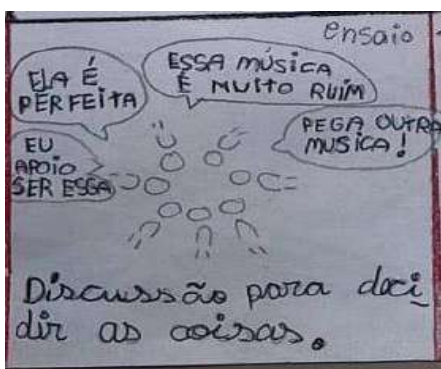 ensaio
ELA É
PERFEITA
ESSA MÚSICA
É MUITO RUIM
PEGA OUTRA
MUSICA!
EU
APOIO
SER ESSA
Discussão para deci
dir as coisas.